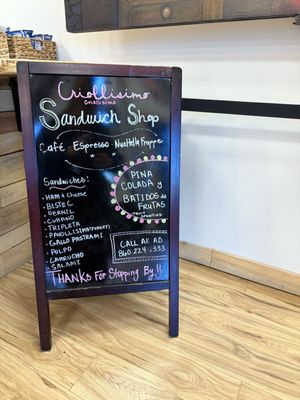 Criollisimo
Criollisimo
Sandwich Shop
Café · Espresso · Nuthella Frappe
Sandwiches:
- Ham & Cheese
- Bistec
- Pernil
- Cubano
- Tripleta
- Gallo Pastrami
- Pulpo
- Carrucho
- Salami
PINA
COLADA y
BATIDOS de
FRUTAS
CALL AHEAD
860.224.3333
THANKS For Stopping By!!